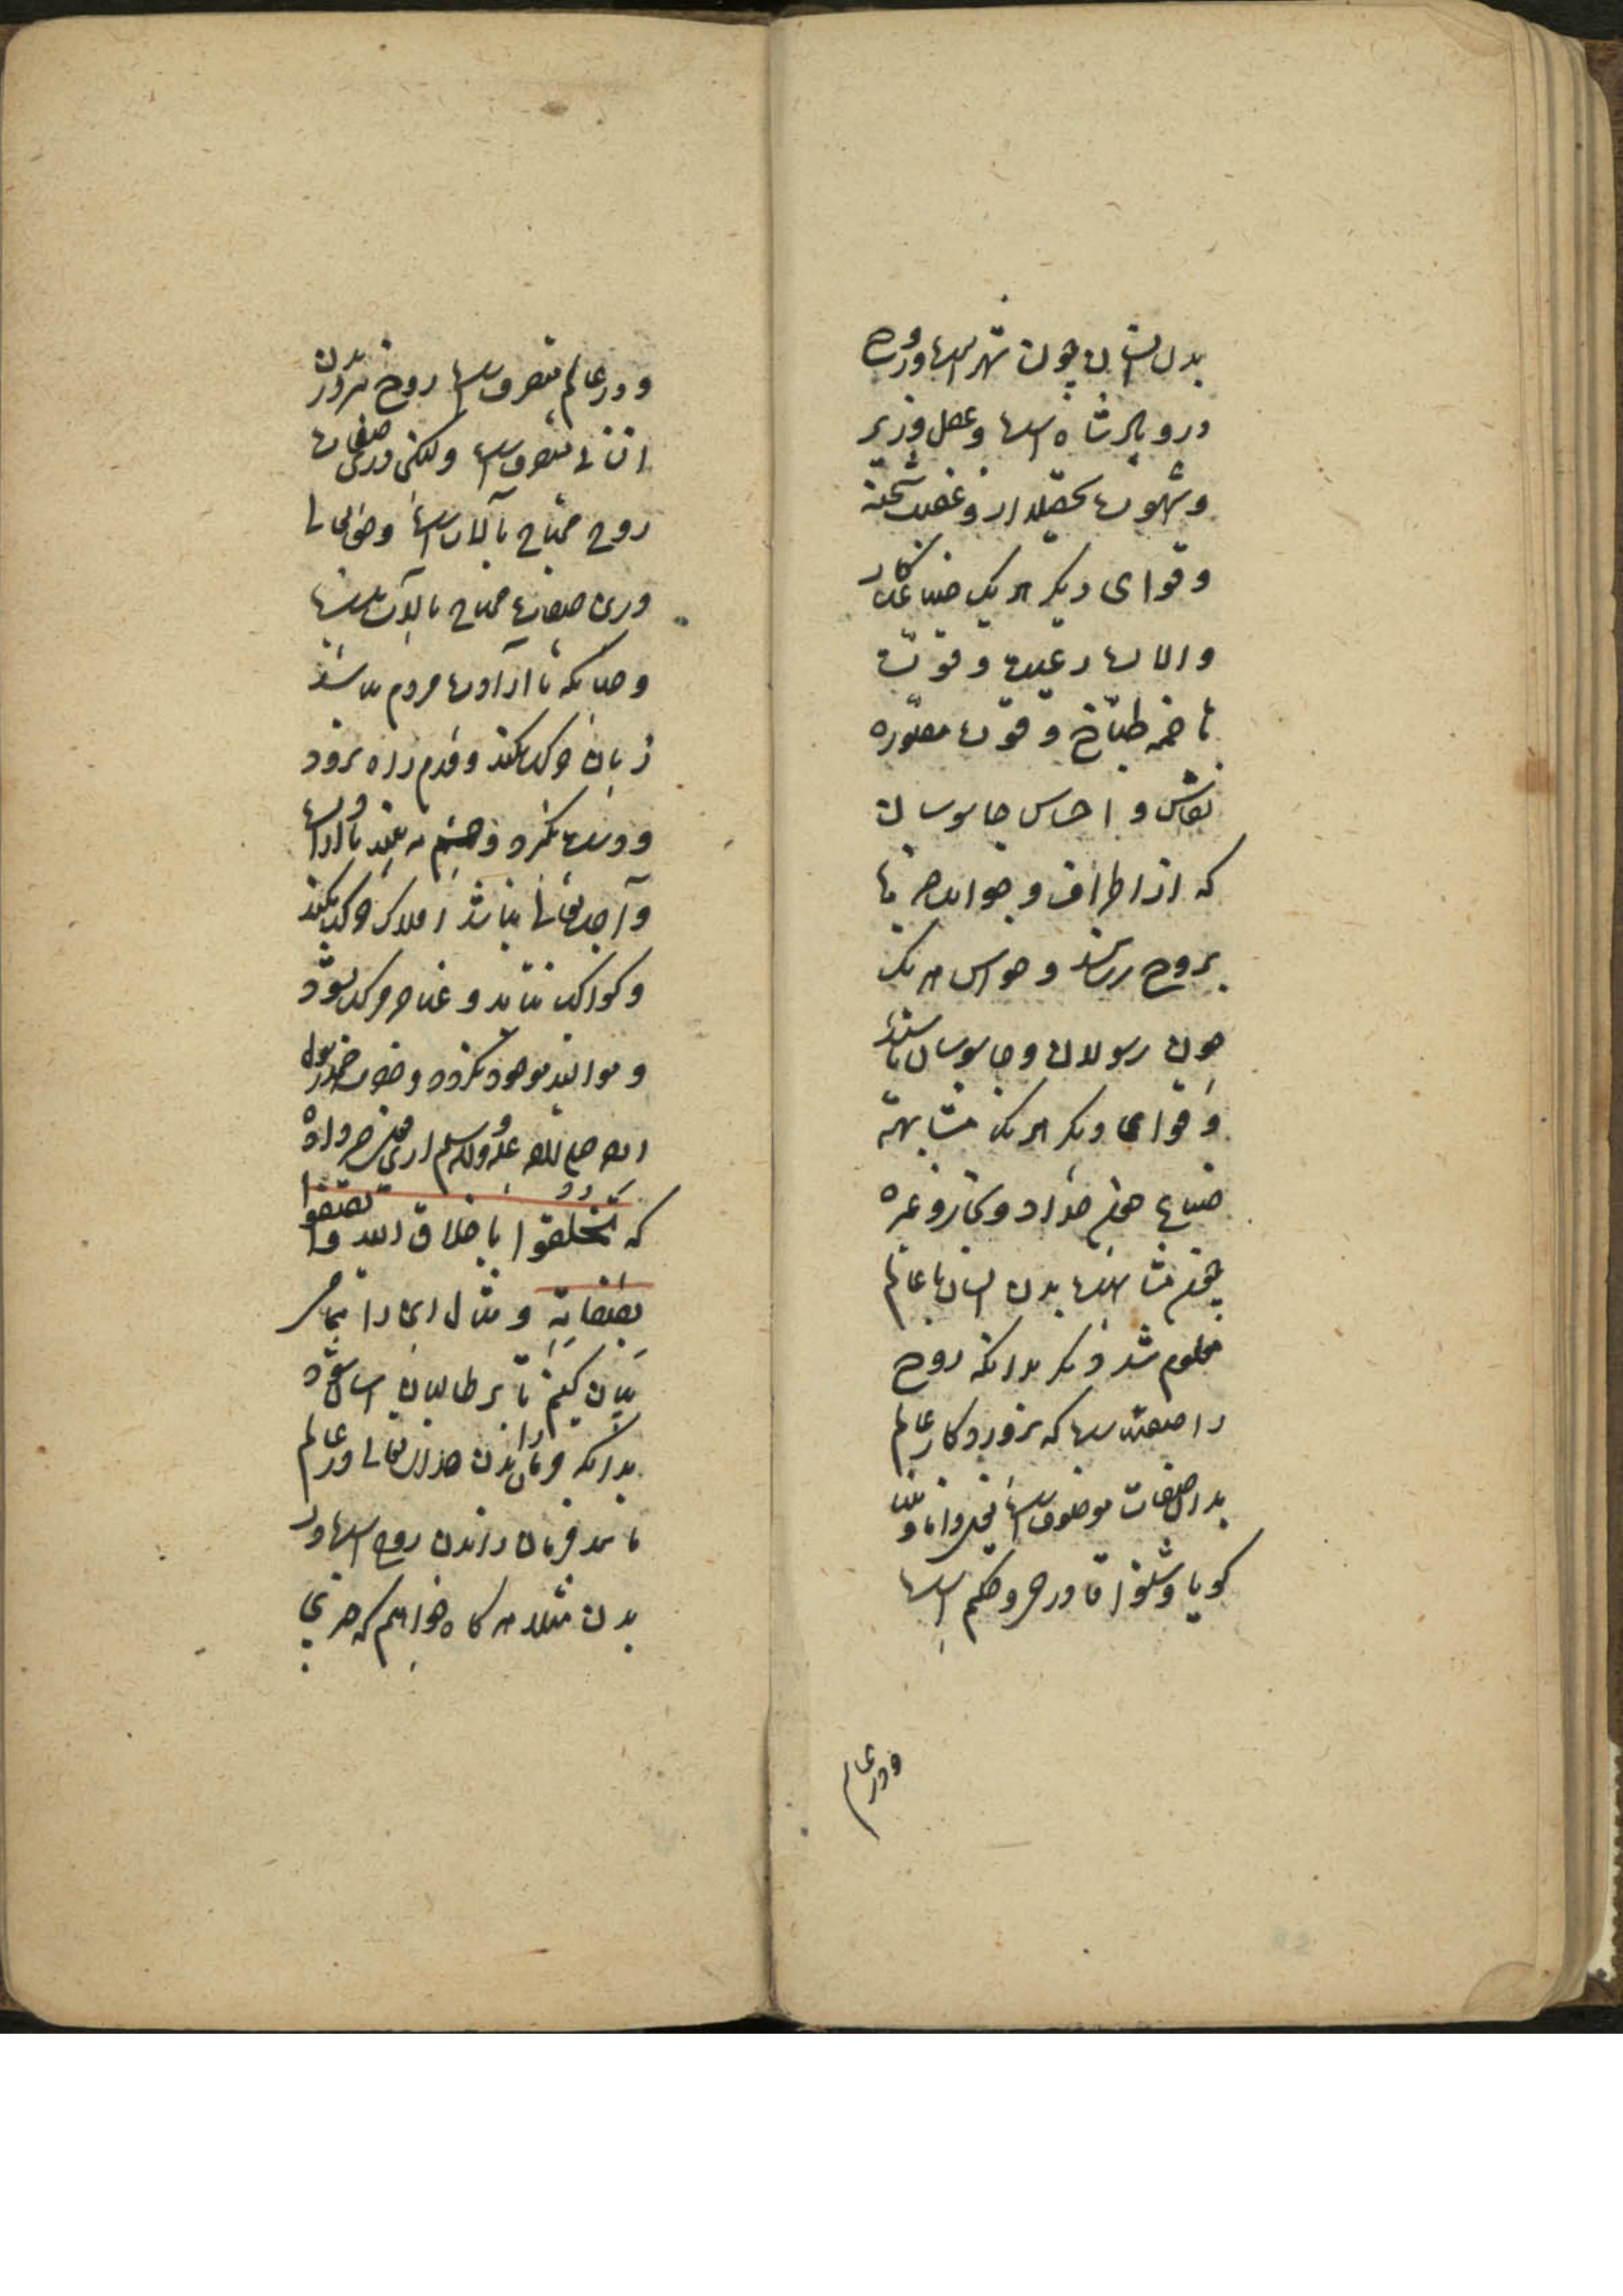 بدن انسان چون شهر است و روح
درو پادشاه است و عقل وزیر
و شهوت تحصیلدار و غضب شحنه
و قوای دیگر هر یک صناعتکار
و اعضا رعیت و قوت
هاضمه طباخ و قوت مصوره
نقاش و احساس جاسوسان
که از اطراف و جوانب خبرها
بروح رسانند و حواس هر یک
چون رسولان و جاسوسان باشند
و قوای دیگر هر یک مشابهت
صناع همچو حداد و نجار و غیره
مشابهت بدن انسان با عالم
معلوم شد دیگر بدانکه روح
را صفتهاست که پروردگار عالم
بدان صفات موصوف است همچو دانا و بینا
گویا و شنوا قادر حی و حکیم است
و در عالم
و در عالم متصرف است روح نیز در بدن
انسانی متصرف است و لیکن درین صفات
روح محتاج بآلات است و حق تعالی
درین صفات محتاج بآلات نیست
و چنانکه تا ارادت مردم نباشد
زبان حرکت نکند و قدم راه نرود
و دست نگیرد و چشم نبیند تا ارادت
واجب تعالی نباشد افلاک حرکت نکنند
و کواکب نتابد و عناصر مرکب نشود
و موالید موجود نگردد و حضرت رسول
الله صلی الله علیه و آله و سلم ازین معنی خبر داده
که تخلقوا باخلاق الله واتصفوا
بصفاته و مثال این را بتمامی
بیان کنیم تا بر طالبان آسان شود
بدانکه فرمان راندن خدای تعالی در عالم
مانند فرمان راندن روح است در
بدن مثلا هر گاه خواهیم که حرفی